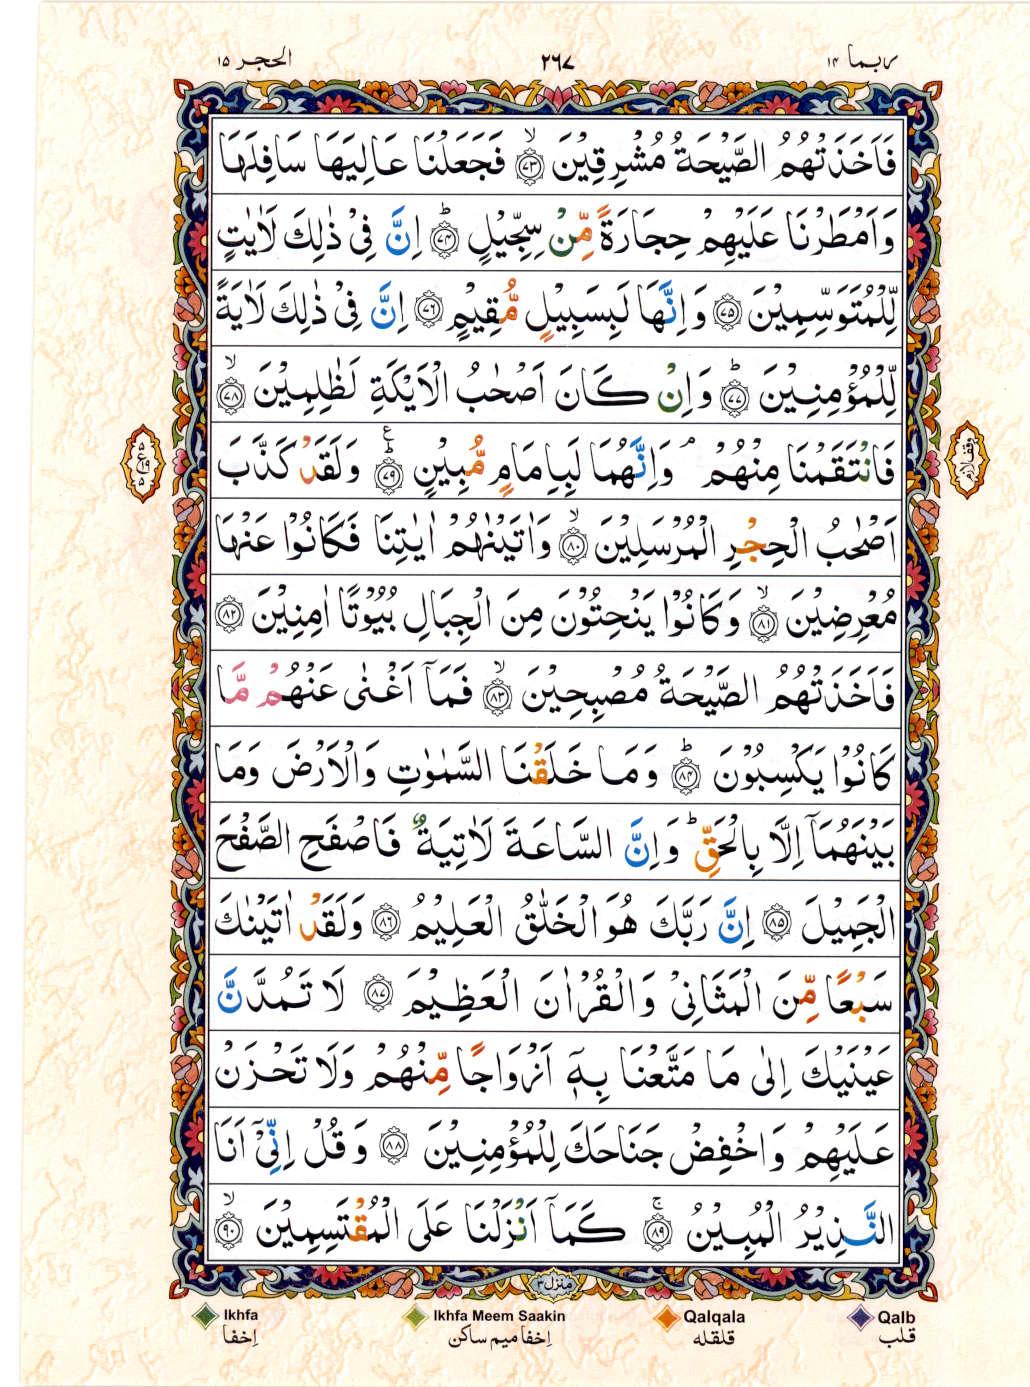 ربما ۱۴
۲۶۷
الحجر ۱۵
فَاَخَذَتْهُمُ الصَّيْحَةُ مُشْرِقِيْنَ ۙ‏﴿۷۳﴾ فَجَعَلْنَا عَالِيَهَا سَافِلَهَا
وَاَمْطَرْنَا عَلَيْهِمْ حِجَارَةً مِّنْ سِجِّيْلٍ ؕ‏﴿۷۴﴾ اِنَّ فِىْ ذٰلِكَ لَاٰيٰتٍ
لِّلْمُتَوَسِّمِيْنَ ﴿۷۵﴾ وَاِنَّهَا لَبِسَبِيْلٍ مُّقِيْمٍ ﴿۷۶﴾ اِنَّ فِىْ ذٰلِكَ لَاٰيَةً
لِّلْمُؤْمِنِيْنَ ؕ‏﴿۷۷﴾ وَاِنْ كَانَ اَصْحٰبُ الْاَيْكَةِ لَظٰلِمِيْنَ ۙ‏﴿۷۸﴾
فَانْتَقَمْنَا مِنْهُمْ ۘ وَاِنَّهُمَا لَبِاِمَامٍ مُّبِيْنٍ ؕ‏﴿۷۹﴾ ع وَلَقَدْ كَذَّبَ
وقف لازم
۵ ع ۱۹ ۵
اَصْحٰبُ الْحِجْرِ الْمُرْسَلِيْنَ ۙ‏﴿۸۰﴾ وَاٰتَيْنٰهُمْ اٰيٰتِنَا فَكَانُوْا عَنْهَا
مُعْرِضِيْنَ ۙ‏﴿۸۱﴾ وَكَانُوْا يَنْحِتُوْنَ مِنَ الْجِبَالِ بُيُوْتًا اٰمِنِيْنَ ﴿۸۲﴾
فَاَخَذَتْهُمُ الصَّيْحَةُ مُصْبِحِيْنَ ۙ‏﴿۸۳﴾ فَمَاۤ اَغْنٰى عَنْهُمْ مَّا
كَانُوْا يَكْسِبُوْنَ ؕ‏﴿۸۴﴾ وَمَا خَلَقْنَا السَّمٰوٰتِ وَالْاَرْضَ وَمَا
بَيْنَهُمَاۤ اِلَّا بِالْحَقِّ ؕ وَاِنَّ السَّاعَةَ لَاٰتِيَةٌ فَاصْفَحِ الصَّفْحَ
الْجَمِيْلَ ﴿۸۵﴾ اِنَّ رَبَّكَ هُوَ الْخَلّٰقُ الْعَلِيْمُ ﴿۸۶﴾ وَلَقَدْ اٰتَيْنٰكَ
سَبْعًا مِّنَ الْمَثَانِىْ وَالْقُرْاٰنَ الْعَظِيْمَ ﴿۸۷﴾ لَا تَمُدَّنَّ
عَيْنَيْكَ اِلٰى مَا مَتَّعْنَا بِهٖۤ اَزْوَاجًا مِّنْهُمْ وَلَا تَحْزَنْ
عَلَيْهِمْ وَاخْفِضْ جَنَاحَكَ لِلْمُؤْمِنِيْنَ ﴿۸۸﴾ وَقُلْ اِنِّىْۤ اَنَا
النَّذِيْرُ الْمُبِيْنُ ۚ‏﴿۸۹﴾ كَمَاۤ اَنْزَلْنَا عَلَى الْمُقْتَسِمِيْنَ ۙ‏﴿۹۰﴾
منزل ۳
Ikhfa Ikhfa Meem Saakin Qalqala Qalb
اِخفا اِخفا میم ساکن قلقله قلب